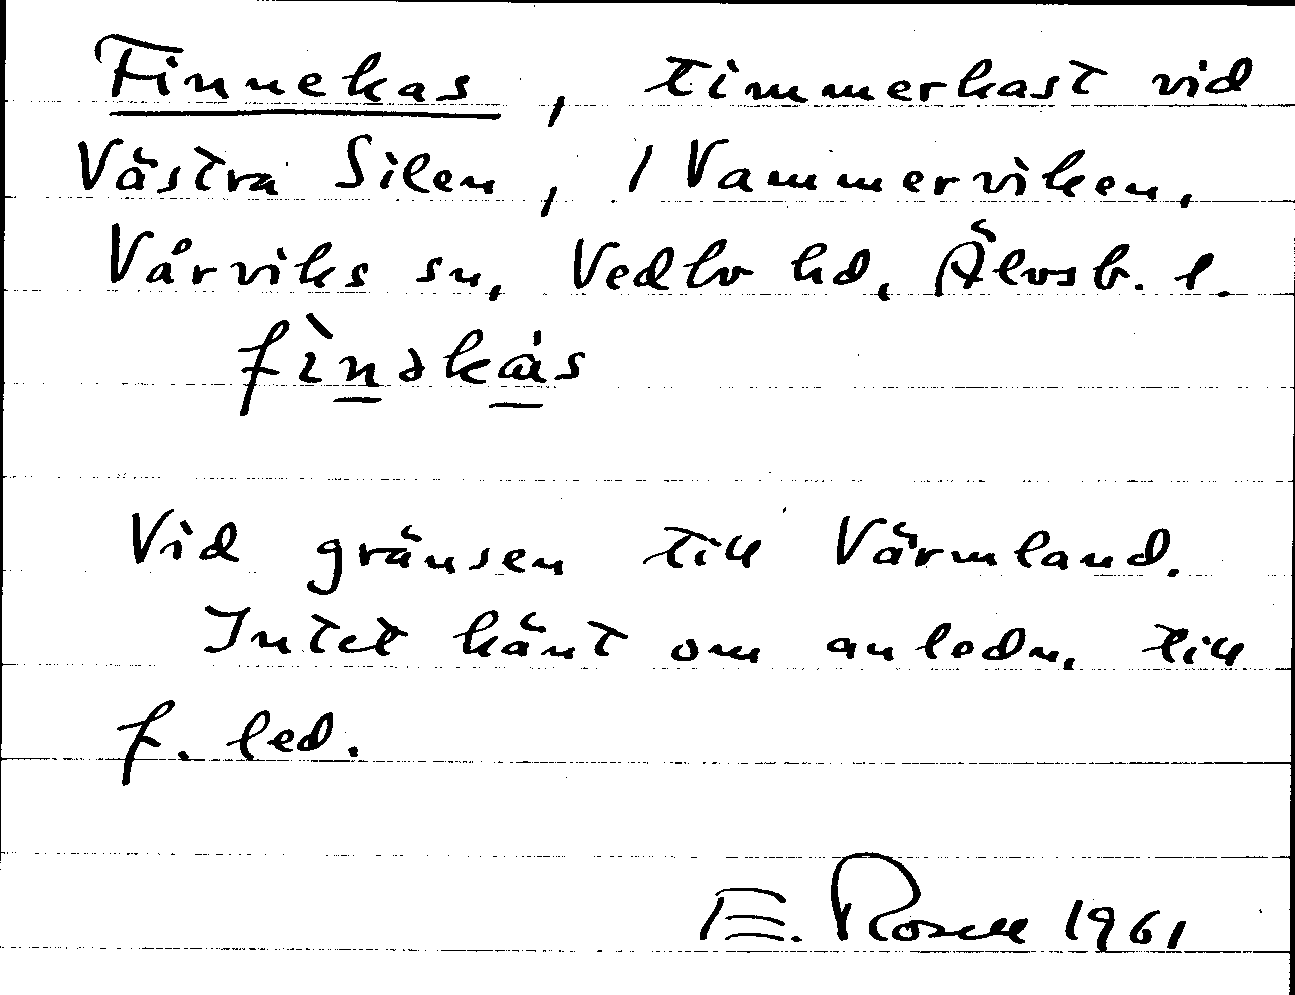 Finnekas, timmerkast vid
Västra Silen, i Vammerviken,
Vårviks sn, Vedbo hd, Älvsb. l.
fìnəkås
Vid gränsen till Värmland.
Intet känt om anledn. till
f. led.
E. Rosell 1961